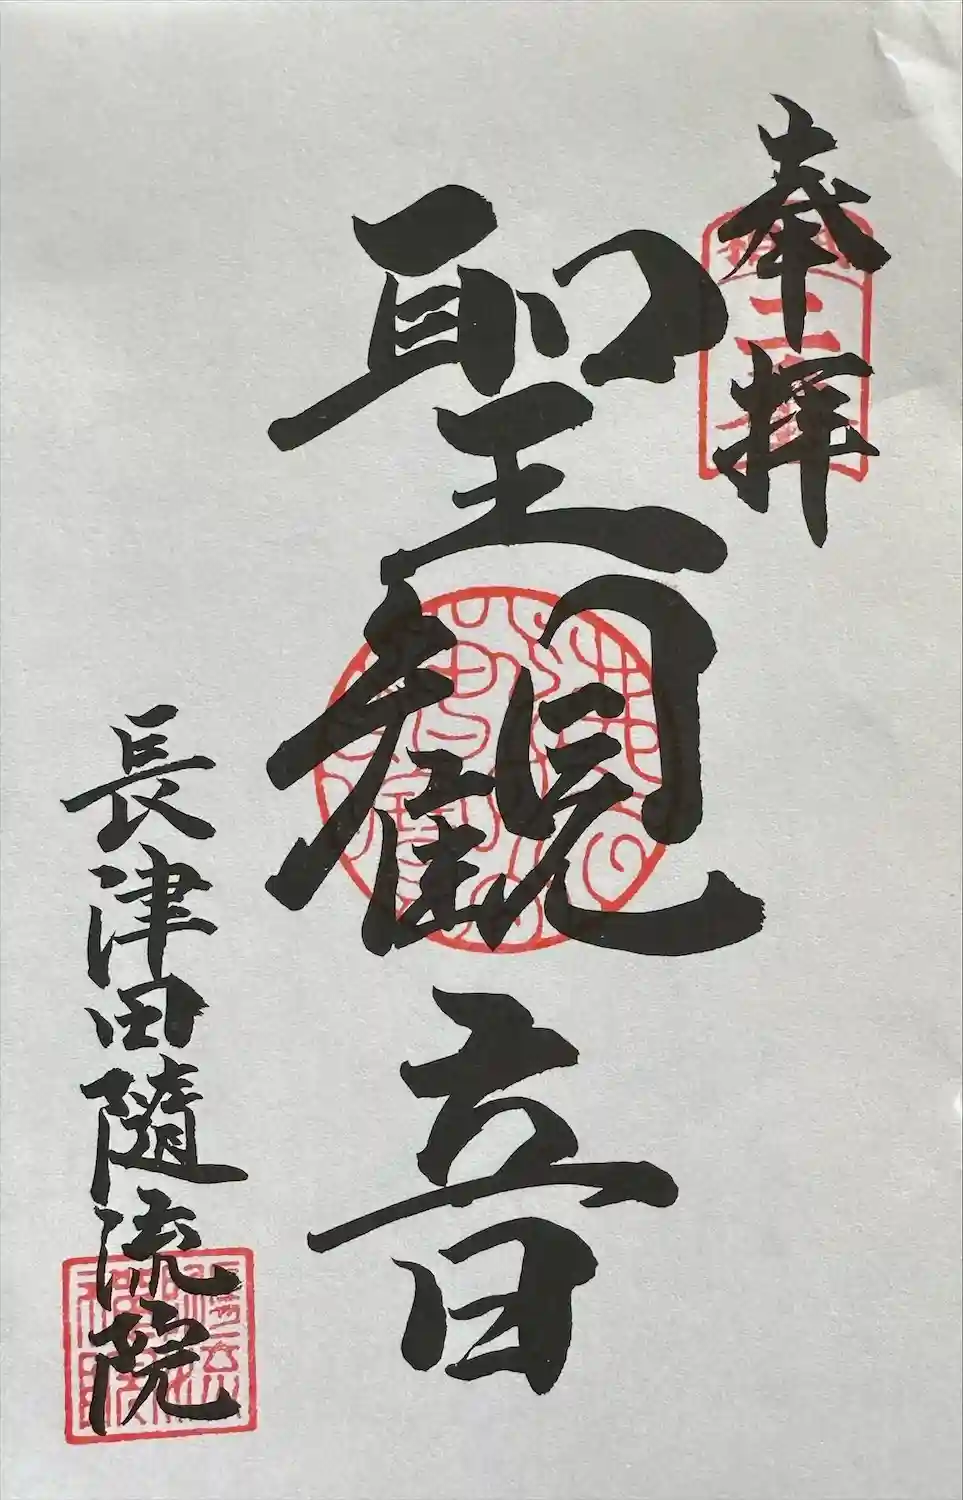 奉拝
聖觀音
長津田隨流院